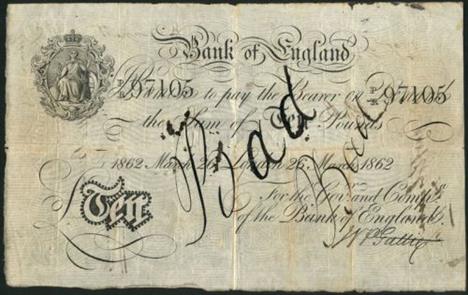 Bank of England
P/K 97105 P/K 97105
to pay the Bearer on
the Sum of Ten Pounds
1862 March 26 London 26 March 1862
Bad
Bad
For the Gov.r and Comp.a
of the Bank of England
Ten